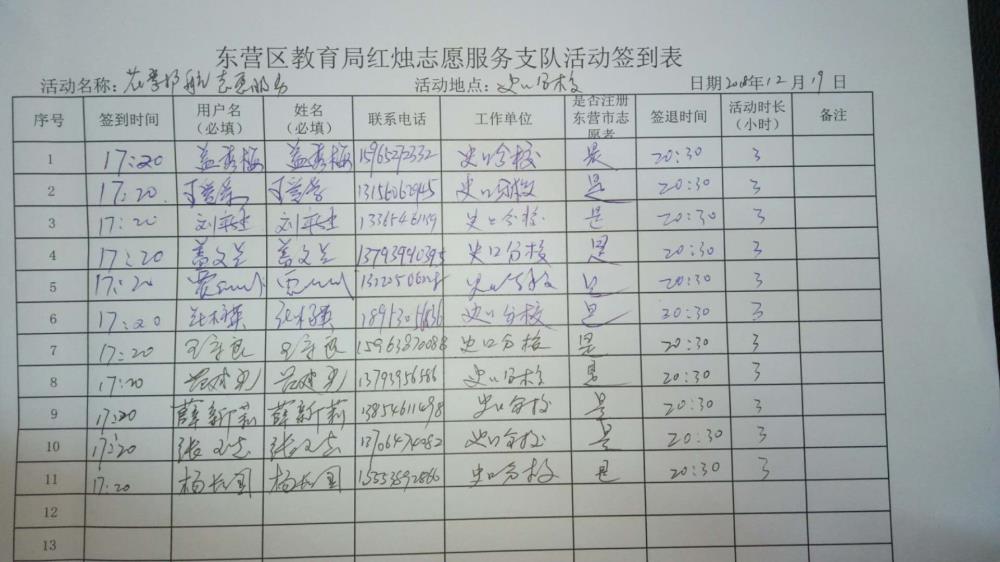 东营区教育局红烛志愿服务支队活动签到表
活动名称: 志愿服务 活动地点: 史口分校 日期2018年12月19日
序号 签到时间 用户名（必填） 姓名（必填） 联系电话 工作单位 是否注册东营市志愿者 签退时间 活动时长（小时） 备注
1 17:20 盖秀梅 盖秀梅 15965272332 史口分校 是 20:30 3
2 17:20 13156062945 史口分校 是 20:30 3
3 17:20 史口分校 是 20:30 3
4 17:20 盖文兰 盖文兰 13793940395 史口分校 是 20:30 3
5 17:20 史口分校 是 20:30 3
6 17:20 史口分校 是 20:30 3
7 17:20 王守良 王守良 15963870088 史口分校 是 20:30 3
8 17:20 13793956586 史口分校 是 20:30 3
9 17:20 薛新莉 薛新莉 13854611498 史口分校 是 20:30 3
10 17:20 13706474282 史口分校 是 20:30 3
11 17:20 杨长国 杨长国 15553892866 史口分校 是 20:30 3
12
13